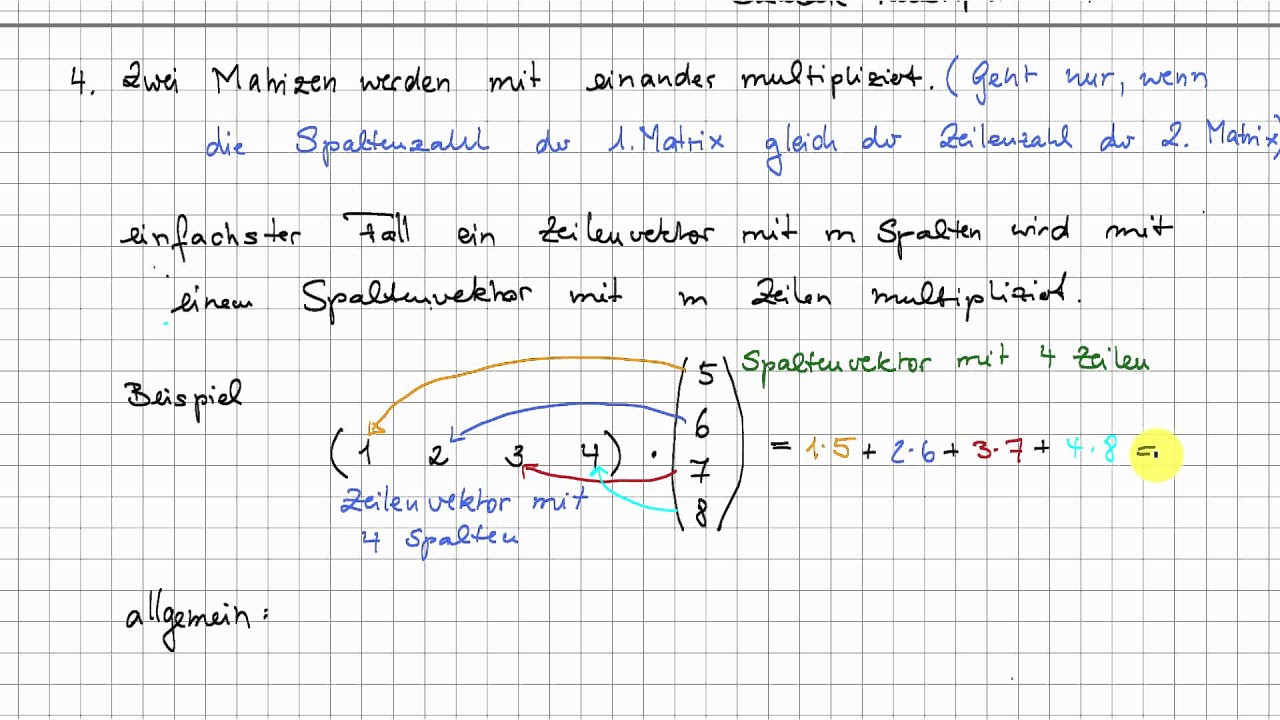 4. Zwei Matrizen werden mit einander multipliziert. (Geht nur, wenn
die Spaltenzahl der 1. Matrix gleich der Zeilenzahl der 2. Matrix)
einfachster Fall ein Zeilenvektor mit m Spalten wird mit
einem Spaltenvektor mit m Zeilen multipliziert.
Beispiel
(1 2 3 4) · (5 6 7 8) = 1·5 + 2·6 + 3·7 + 4·8 =
Spaltenvektor mit 4 Zeilen
Zeilenvektor mit
4 Spalten
allgemein: